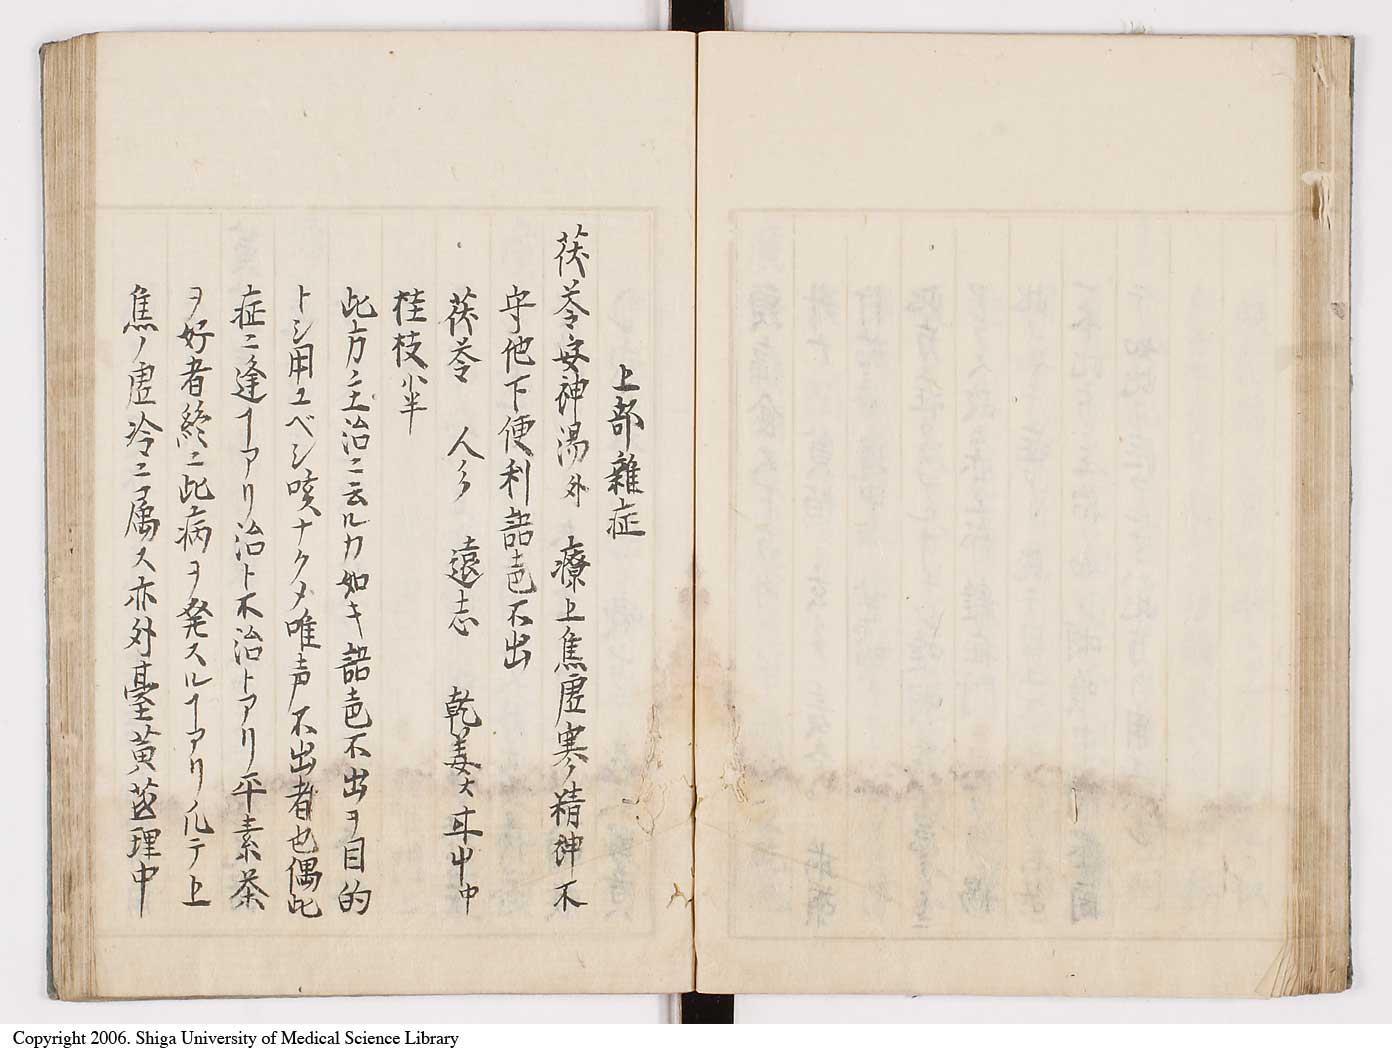 上部雜症
茯苓安神湯外 療上焦虚寒ノ精神不
守他下便利語色不出
茯苓 人参 遠志 乾姜大 中中
桂枝小半
此方主治ニ云ルカ如キ語色不出ヲ目的
トシ用ユベシ咳ナクメ唯声不出者也偶此
症ニ逢ヿアリ治ト不治トアリ平素茶
ヲ好者終ニ此病ヲ発スルヿアリ凡テ上
焦ノ虚冷ニ属ス亦外臺黄芪理中
Copyright 2006. Shiga University of Medical Science Library